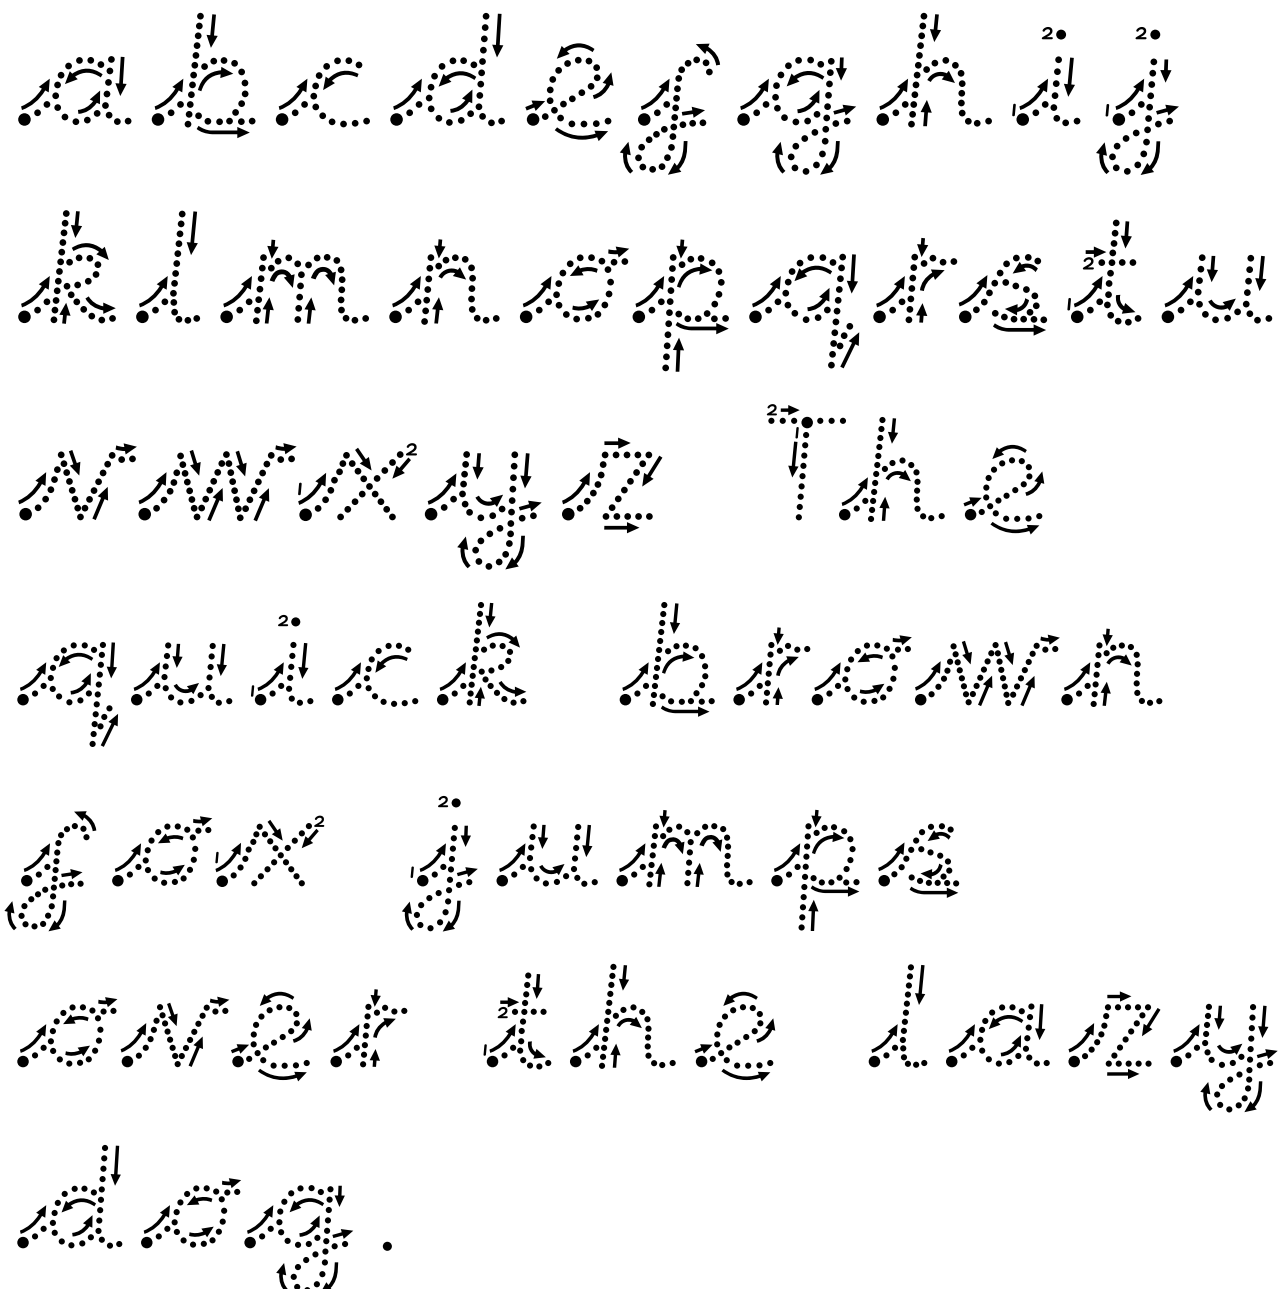 a b c d e f g h i j
k l m n o p q r s t u
v w x y z The
quick brown
fox jumps
over the lazy
dog.